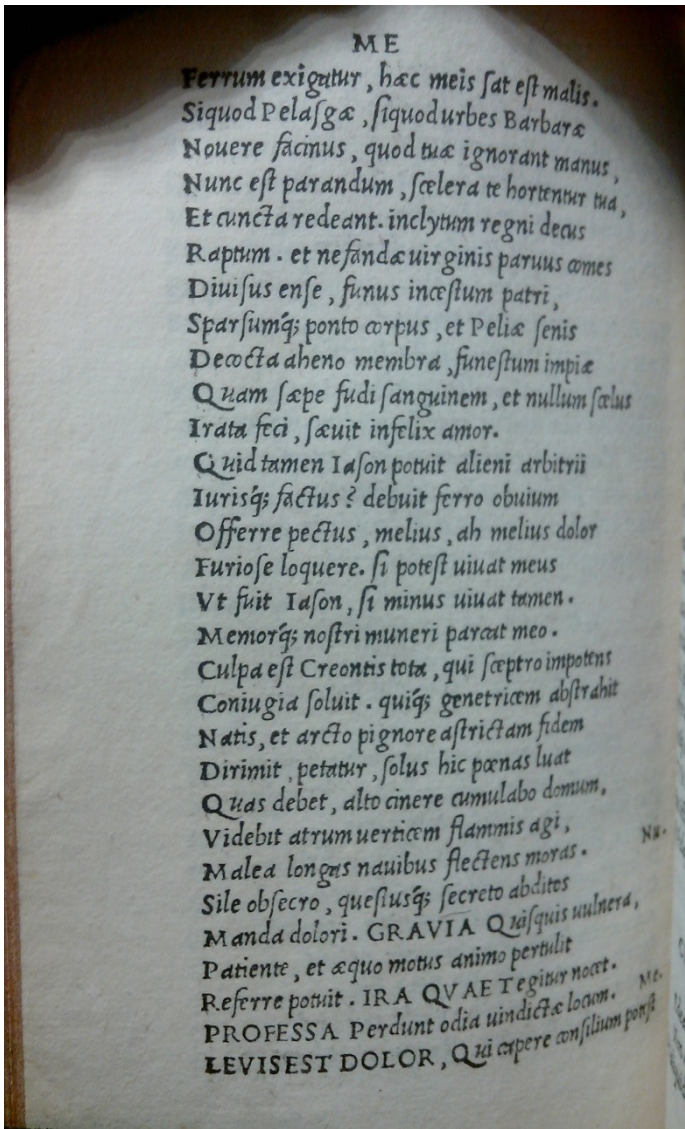 ME
Ferrum exigatur, hæc meis ſat eſt malis.
Siquod Pelaſgæ, ſiquod urbes Barbaræ
Nouere facinus, quod tuæ ignorant manus,
Nunc eſt parandum, ſcelera te hortentur tua,
Et cuncta redeant. inclytum regni decus
Raptum. et nefandæ uirginis paruus comes
Diuiſus enſe, funus inceſtum patri,
Sparſumq́; ponto corpus, et Peliæ ſenis
Decocta aheno membra, funeſtum impiæ
Quam ſæpe fudi ſanguinem, et nullum ſcelus
Irata feci, ſæuit infelix amor.
Quid tamen Iaſon potuit alieni arbitrii
Iurisq́; factus? debuit ferro obuium
Offerre pectus, melius, ah melius dolor
Furioſe loquere. ſi poteſt uiuat meus
Vt fuit Iaſon, ſi minus uiuat tamen.
Memorq́; noſtri muneri parcat meo.
Culpa eſt Creontis tota, qui ſceptro impotens
Coniugia ſoluit. quiq́; genetricem abſtrahit
Natis, et arcto pignore aſtrictam fidem
Dirimit, petatur, ſolus hic pœnas luat
Quas debet, alto cinere cumulabo domum,
Videbit atrum uerticem flammis agi,
Malea longas nauibus flectens moras. Nu.
Sile obſecro, queſtusq́; ſecreto abditos
Manda dolori. GRAVIA Quiſquis uulnera,
Patiente, et æquo motus animo pertulit
Referre potuit. IRA QVAE Tegitur nocet.
PROFESSA Perdunt odia uindictæ locum. Me.
LEVIS EST DOLOR, Qui capere conſilium poteſt